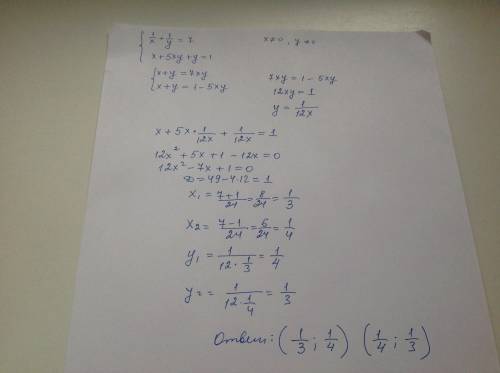 { 1/x + 1/y = 7    x≠0, y≠0
x + 5xy + y = 1
{ x + y = 7xy    7xy = 1 - 5xy
x + y = 1 - 5xy    12xy = 1
y = 1/12x
x + 5x · 1/12x + 1/12x = 1
12x² + 5x + 1 - 12x = 0
12x² - 7x + 1 = 0
D = 49 - 4·12 = 1
x₁ = 7+1/24 = 8/24 = 1/3
x₂ = 7-1/24 = 6/24 = 1/4
y₁ = 1/12·1/3 = 1/4
y₂ = 1/12·1/4 = 1/3
Ответ: (1/3; 1/4) (1/4; 1/3)